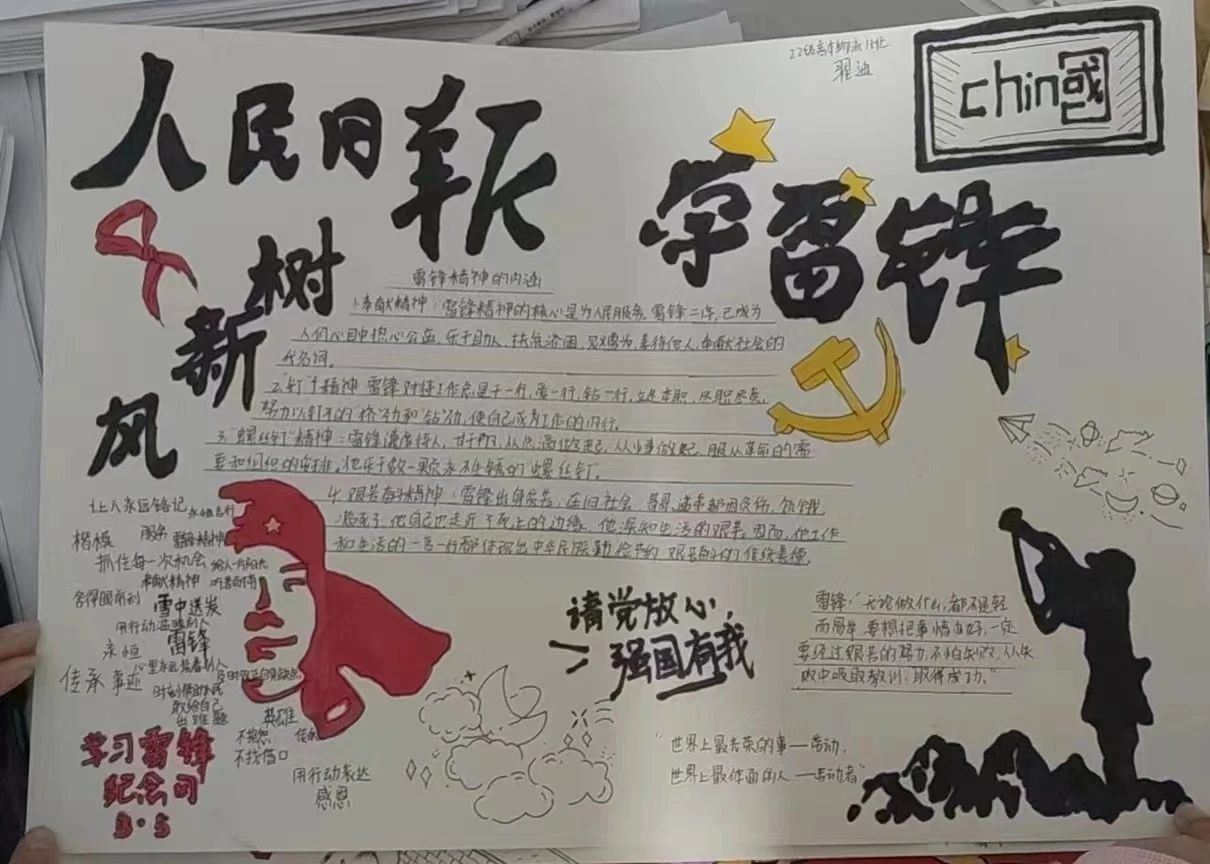 人民日报
chin国
学雷锋
树
新
风
雷锋精神的内涵
1.奉献精神：雷锋精神的核心是为人民服务。雷锋二字，已成为
人们心目中热心公益、乐于助人、扶危济困、见义勇为、善待他人、奉献社会的
代名词。
2."钉"子精神 雷锋对待工作总是干一行，爱一行，钻一行，立足本职，尽职尽责，
努力以钉子的"挤"劲和"钻"劲，使自己成为工作的内行。
3."螺丝钉"精神：雷锋谦虚待人，甘于
从小事做起，服从革命的需
要和组织的安排，他乐于做一颗永不生锈的"螺丝钉。
4.艰苦奋斗精神：雷锋出身
在旧社会
他自己也走近了死亡的边缘。他深知生活的艰苦，因而，他工作
和生活的一言一行都体现出中华民族勤俭节约 艰苦奋斗的传统美德。
让人永远铭记
楷模
服务
雷锋精神
抓住每一次机会
奉献精神
雪中送炭
雷锋
永恒
传承 事迹
敢给自己
出难题
英雄
不找借口
用行动表达
感恩
学习雷锋
纪念日
3·5
请党放心，
强国有我
雷锋："无论做什么，都不是轻
而易举，要想把事情办好，一定
要经过艰苦的努力，不怕失败，从失
败中吸取教训，取得成功。
"世界上最光荣的事——劳动，
世界上最体面的人——劳动者"